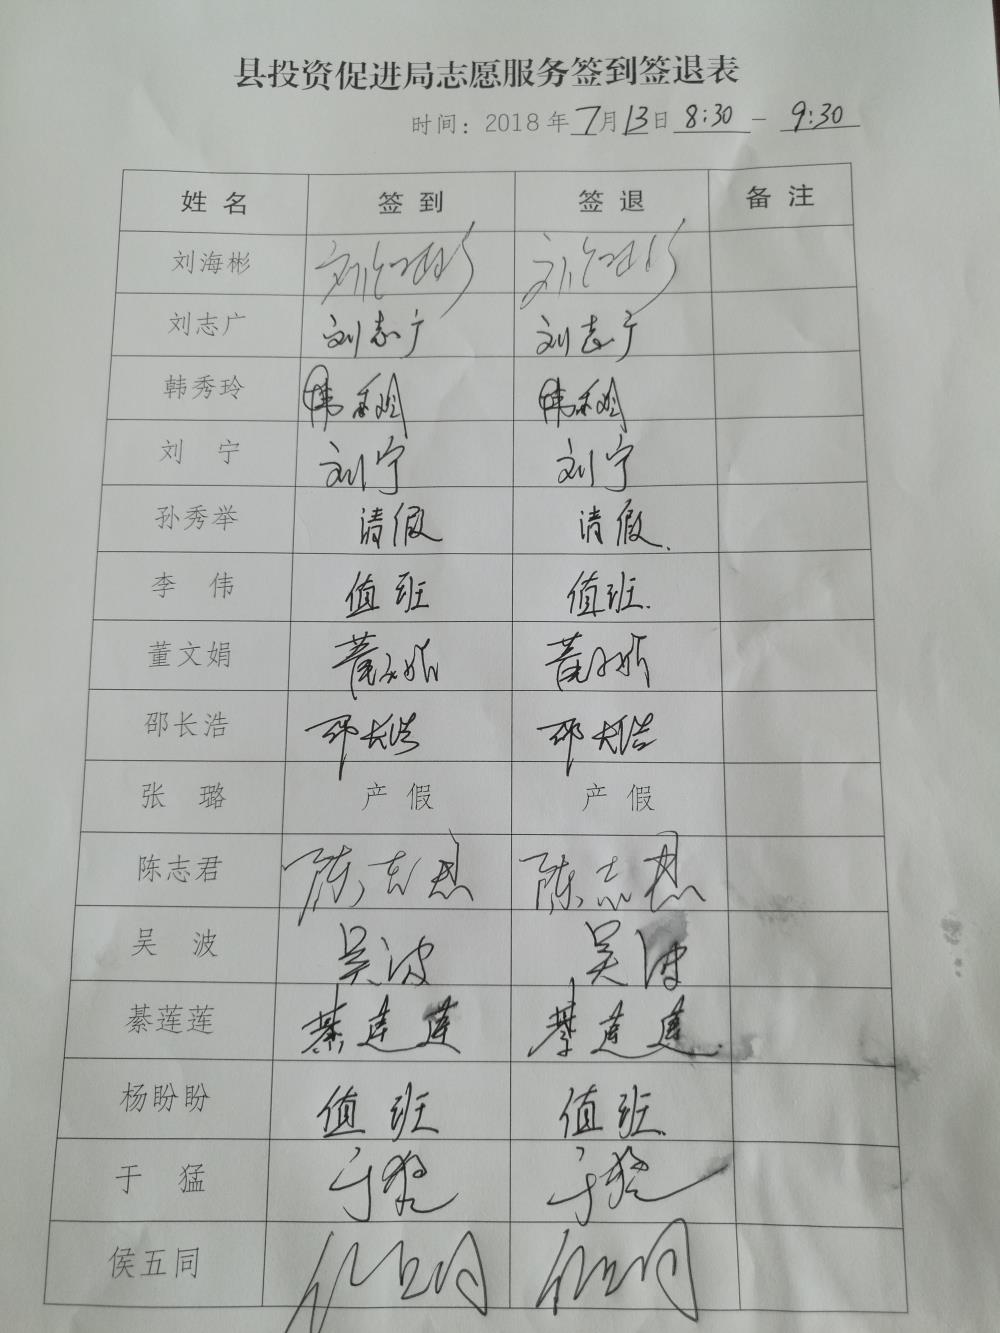 县投资促进局志愿服务签到签退表
时间：2018年7月13日 8:30 - 9:30
姓名 签到 签退 备注
刘海彬 刘海彬 刘海彬
刘志广 刘志广 刘志广
韩秀玲 韩秀玲 韩秀玲
刘 宁 刘宁 刘宁
孙秀举 请假 请假.
李 伟 值班 值班.
董文娟 董文娟 董文娟
邵长浩 邵长浩 邵长浩
张 璐 产假 产假
陈志君 陈志君 陈志君
吴 波 吴波 吴波
綦莲莲 綦莲莲 綦莲莲
杨盼盼 值班 值班.
于 猛 于猛 于猛
侯五同 侯五同 侯五同